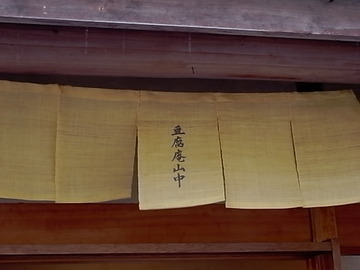 豆腐庵山中